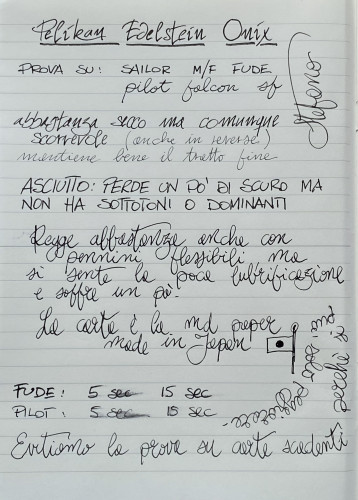 Pelikan Edelstein Onix
PROVA SU: SAILOR M/F FUDE
pilot falcon sf
Stefano
abbastanza secco ma comunque
scorrevole (anche in reverse)
mantiene bene il tratto fine
ASCIUTTO: PERDE UN PO' DI SCURO MA
NON HA SOTTOTONI O DOMINANTI
Regge abbastanza anche con
pennini flessibili ma
si sente la poca lubrificazione
e soffre un po'.
La carta è la md paper
made in Japan
FUDE: 5 sec 15 sec
PILOT: 5 sec 15 sec
Evitiamo la prova su carte scadenti,
perché si
può solo peggiorare.